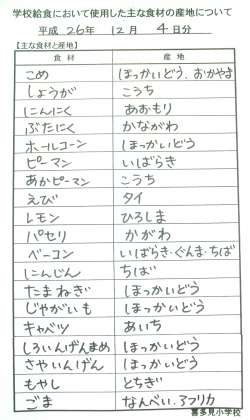 学校給食において使用した主な食材の産地について
平成 26年 12月 4日分
【主な食材と産地】
食材 産地
こめ ほっかいどう、おかやま
しょうが こうち
にんにく あおもり
ぶたにく かながわ
ホールコーン ほっかいどう
ピーマン いばらき
あかピーマン こうち
えび タイ
レモン ひろしま
パセリ かがわ
ベーコン いばらき・ぐんま・ちば
にんじん ちば
たまねぎ ほっかいどう
じゃがいも ほっかいどう
キャベツ あいち
しろいんげんまめ ほっかいどう
さやいんげん ほっかいどう
もやし とちぎ
ごま なんべい、アフリカ
喜多見小学校